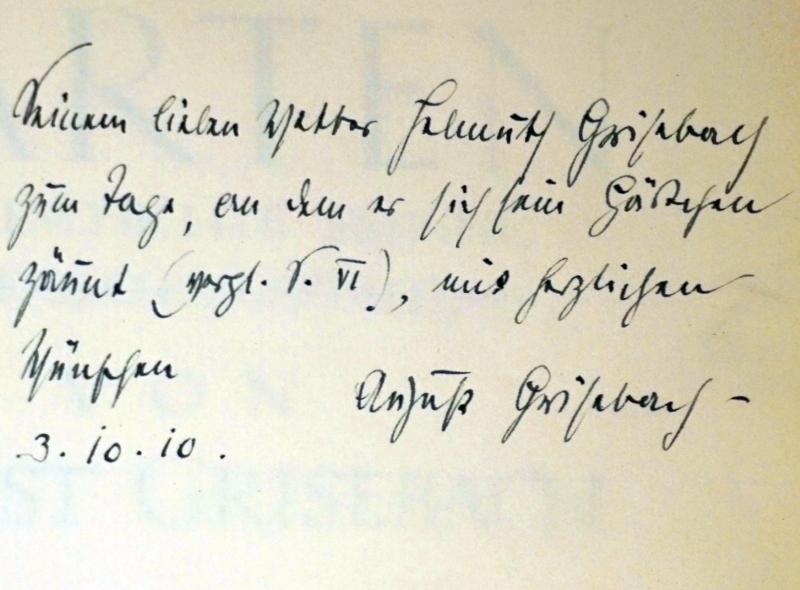 Seinem lieben Vetter Helmuth Grisebach
zum Tage, an dem er sich sein Gärtchen
zäunt (vergl. S. VI), mit herzlichen
Wünschen
August Grisebach –
3. 10. 10.